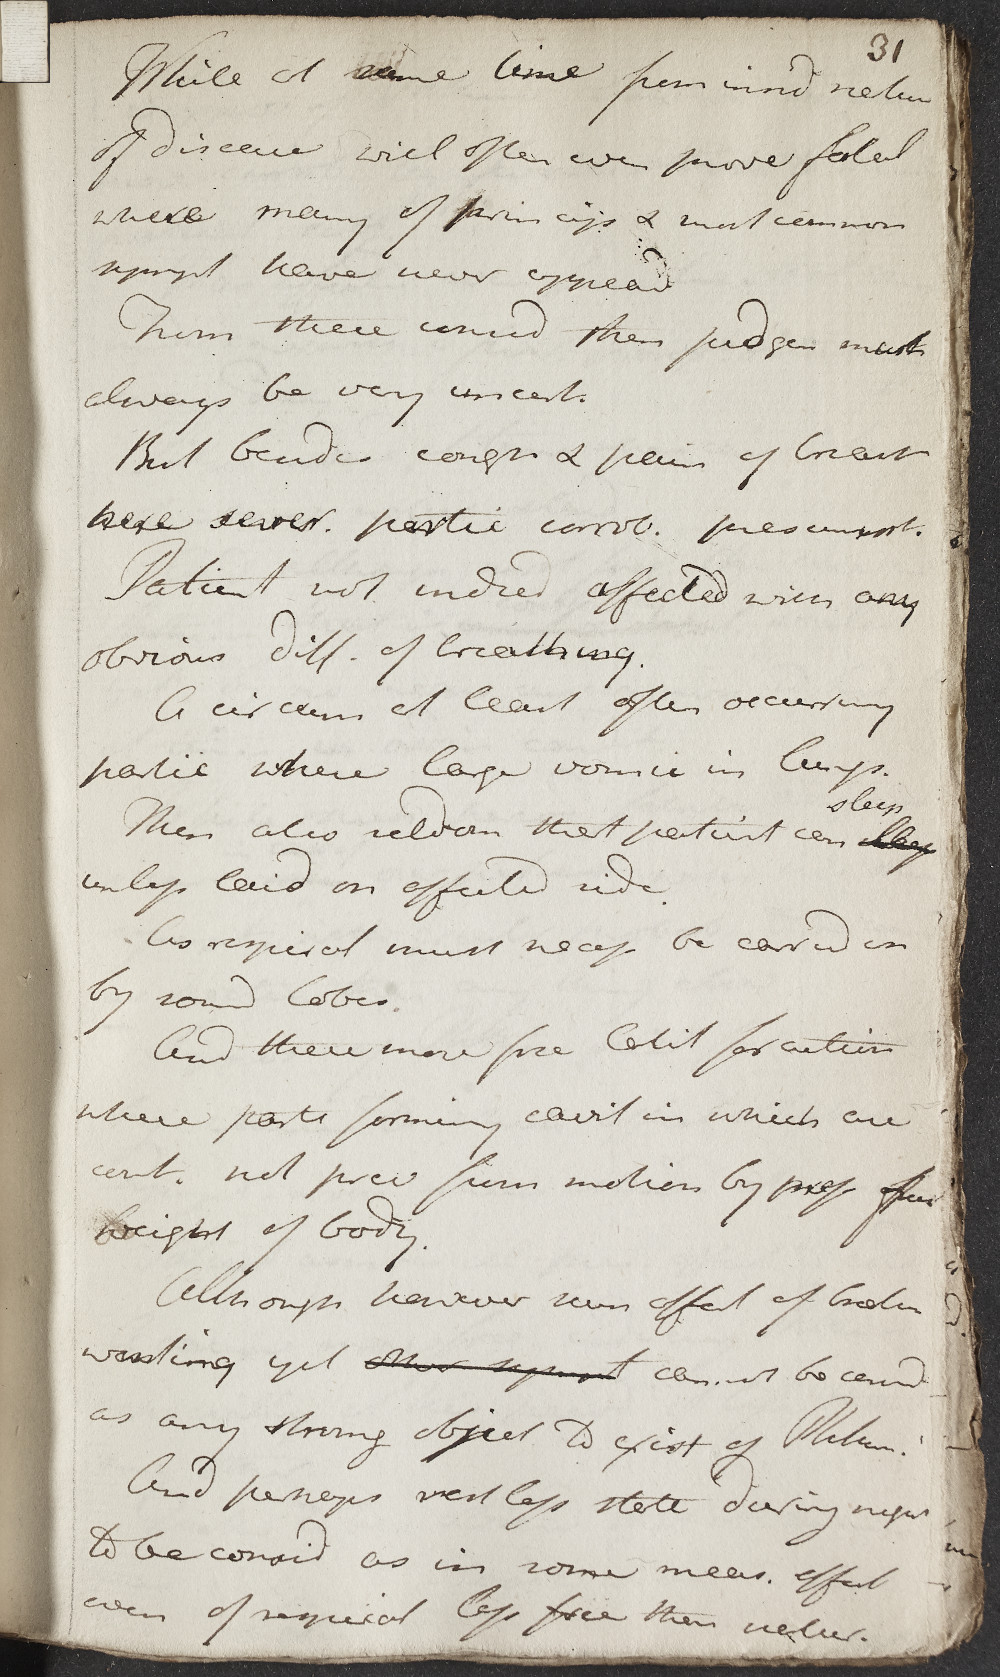 31
While at same time from insid natur
of disease will often even prove fatal
where many of princips & most common
sympt have never appead
From these consid then judgen must
always be very uncert.
But besides cough & pain of breast
here sever. partic corrob. presumpt.
Patient not indeed affected with any
obvious diff. of breathing.
A circum at least often occurring
partic where large vomic in lungs.
Then also seldom that patient can sleep
unless laid on affected side.
As respirat must necess be carried on
by sound lobes.
And these more free latit for action
where parts forming cavit in which are
cont. not prev from motion by press from
weight of body.
Although however seen effect of
wasting yet cannot be consid
as any strong object to exist of Phthisis.
And perhaps restless state during night
to be consid as in some meas. effect
even of respirat less free than natur.